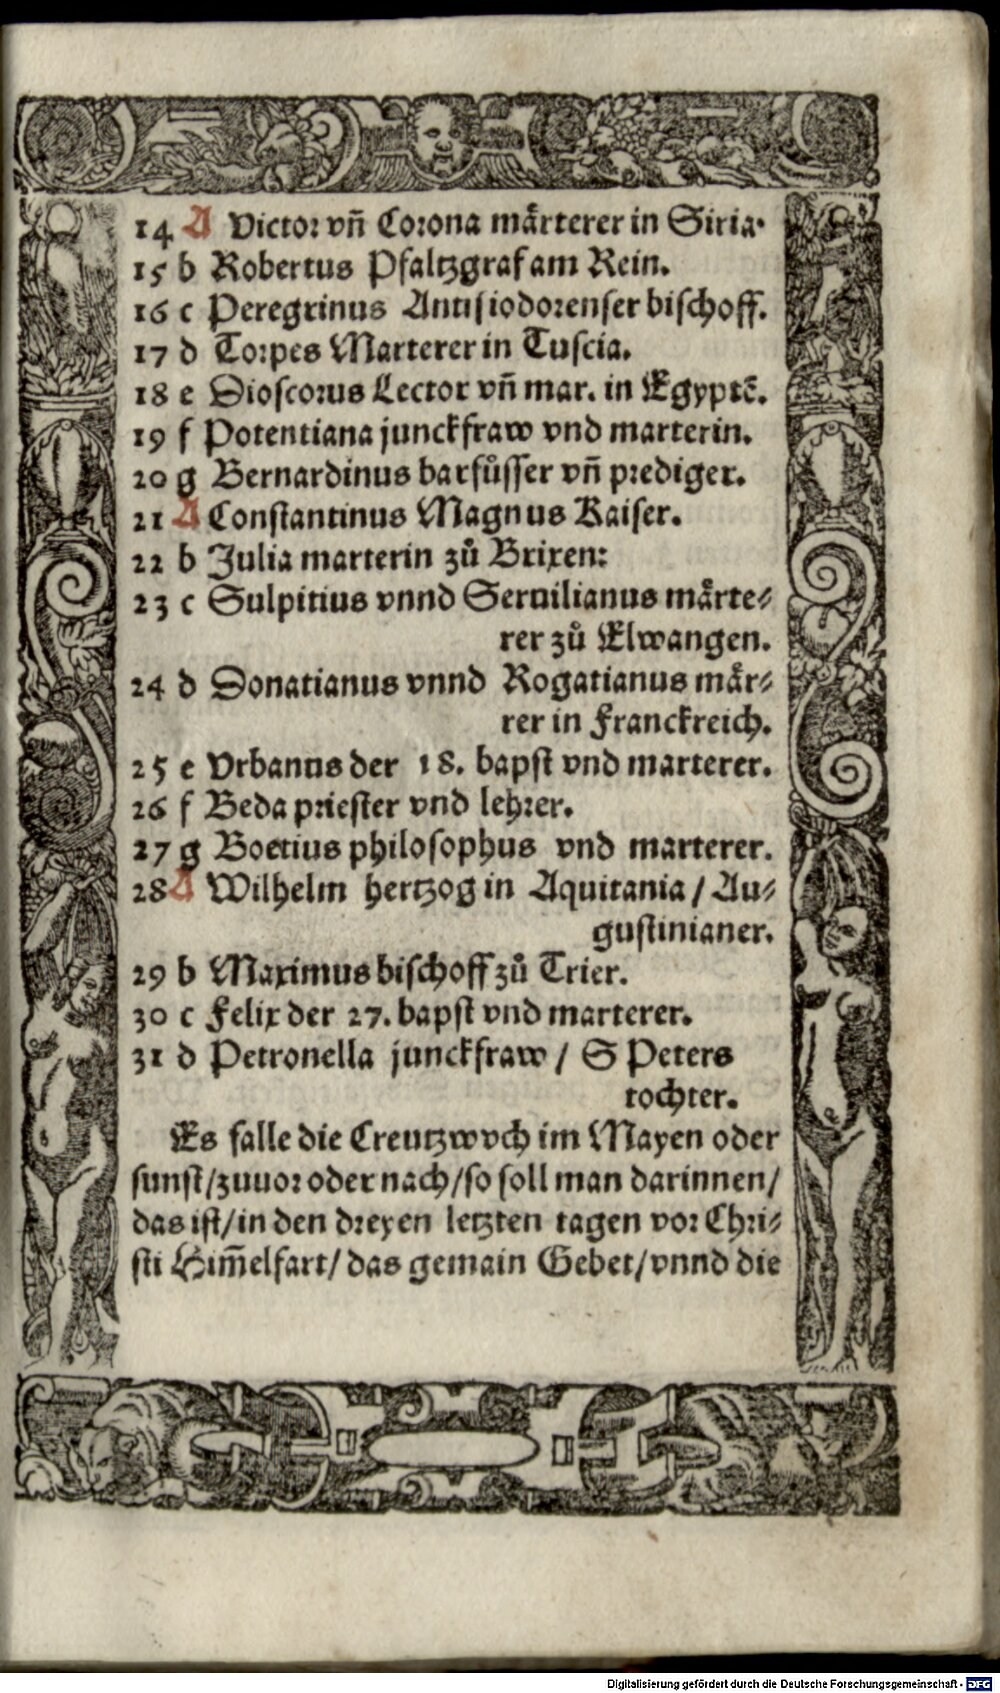 14 A Victor vn̄ Corona mårterer in Siria.
15 b Robertus Pfaltzgraf am Rein.
16 c Peregrinus Antisiodorenser bischoff.
17 d Torpes Marterer in Tuscia.
18 e Dioscorus Lector vn̄ mar. in Egyptē.
19 f Potentiana junckfraw vnd marterin.
20 g Bernardinus barfůsser vn̄ prediger.
21 A Constantinus Magnus Kaiser.
22 b Julia marterin zů Brixen:
23 c Sulpitius vnnd Seruilianus mårte⸗
rer zů Elwangen.
24 d Donatianus vnnd Rogatianus mår⸗
rer in Franckreich.
25 e Vrbanus der 18. bapst vnd marterer.
26 f Beda priester vnd lehrer.
27 g Boetius philosophus vnd marterer.
28 A Wilhelm hertzog in Aquitania / Au⸗
gustinianer.
29 b Maximus bischoff zů Trier.
30 c Felix der 27. bapst vnd marterer.
31 d Petronella junckfraw / S Peters
tochter.
Es falle die Creutzwvch im Mayen oder
sunst/zuuor oder nach/so soll man darinnen/
das ist/in den dreyen letzten tagen vor Chri⸗
sti Him̄elfart/das gemain Gebet/vnnd die
Digitalisierung gefördert durch die Deutsche Forschungsgemeinschaft - DFG